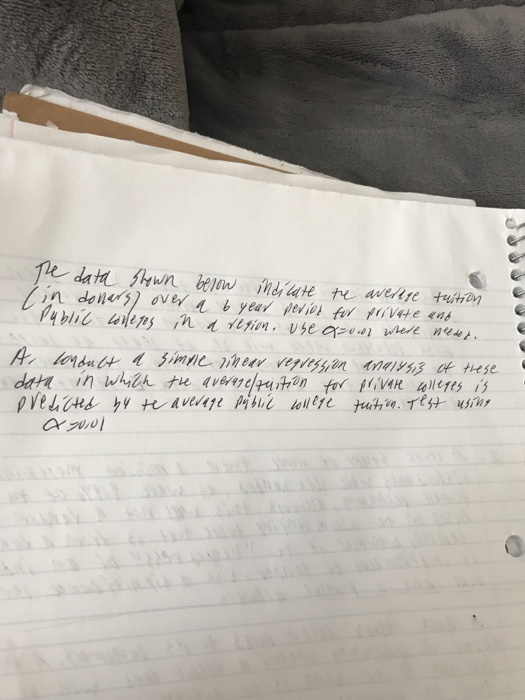 The data shown below indicate the average tuition
(in dollars) over a 6 year period for private and
Public colleges in a region. Use α=0.01 where needed.
A. Conduct a simple linear regression analysis of these
data in which the average tuition for private colleges is
predicted by the average public college tuition. Test using
α=0.01